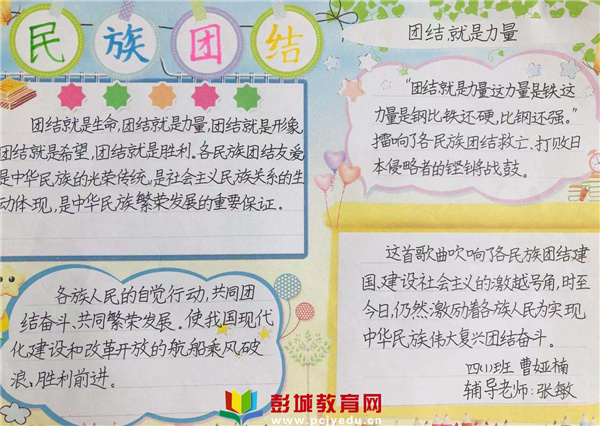 民族团结
团结就是生命,团结就是力量,团结就是形象,
团结就是希望,团结就是胜利。各民族团结友爱
是中华民族的光荣传统,是社会主义民族关系的生
动体现,是中华民族繁荣发展的重要保证。
各族人民的自觉行动,共同团
结奋斗、共同繁荣发展。使我国现代
化建设和改革开放的航船乘风破
浪、胜利前进。
团结就是力量
“团结就是力量这力量是铁这
力量是钢比铁还硬,比钢还强。”
擂响了各民族团结救亡、打败日
本侵略者的铿锵战鼓。
这首歌曲吹响了各民族团结建
国、建设社会主义的激越号角,时至
今日,仍然激励着各族人民为实现
中华民族伟大复兴团结奋斗。
四川班 曹娅楠
辅导老师:张敏
彭城教育网
www.pcjyedu.cn